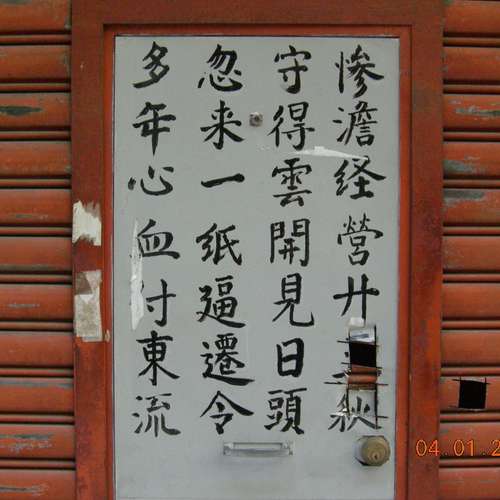 惨澹経營廿秋
守得雲開見日頭
忽来一紙逼遷令
多年心血付東流
04.01.2